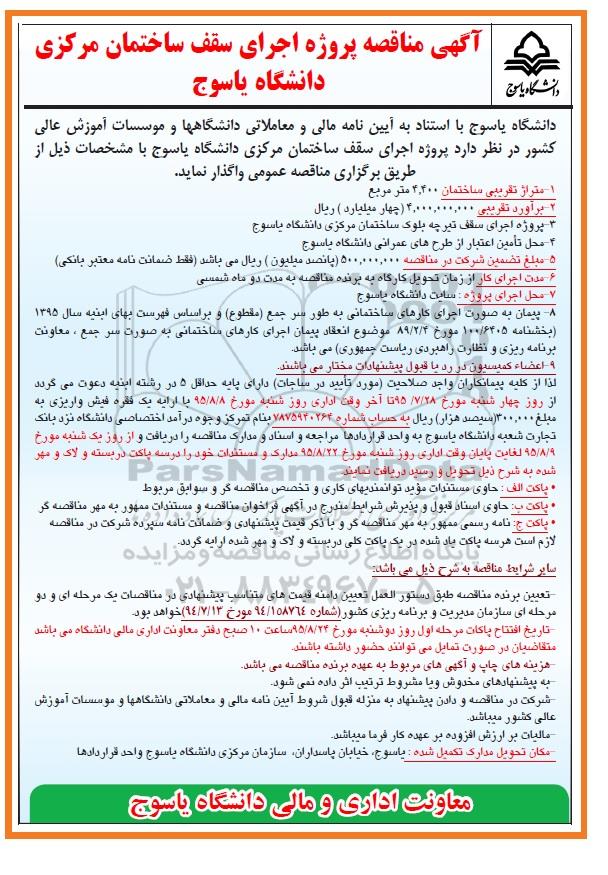 آگهی مناقصه پروژه اجرای سقف ساختمان مرکزی
دانشگاه یاسوج
دانشگاه یاسوج
دانشگاه یاسوج با استناد به آیین نامه مالی و معاملاتی دانشگاهها و موسسات آموزش عالی
کشور در نظر دارد پروژه اجرای سقف ساختمان مرکزی دانشگاه یاسوج با مشخصات ذیل از
طریق برگزاری مناقصه عمومی واگذار نماید.
۱-متراژ تقریبی ساختمان ۴,۴۰۰ متر مربع
۲-برآورد تقریبی ۴,۰۰۰,۰۰۰,۰۰۰ (چهار میلیارد ) ریال
۳-پروژه اجرای سقف تیرچه بلوک ساختمان مرکزی دانشگاه یاسوج
۴-محل تأمین اعتبار از طرح های عمرانی دانشگاه یاسوج
۵-مبلغ تضمین شرکت در مناقصه ۵۰۰,۰۰۰,۰۰۰ (پانصد میلیون ) ریال می باشد (فقط ضمانت نامه معتبر بانکی)
۶-مدت اجرای کار از زمان تحویل کارگاه به برنده مناقصه به مدت دو ماه شمسی
۷-محل اجرای پروژه : سایت دانشگاه یاسوج
۸- پیمان به صورت اجرای کارهای ساختمانی به طور سر جمع (مقطوع) و براساس فهرست بهای ابنیه سال ۱۳۹۵
(بخشنامه ۱۰۰/۶۴۰۵ مورخ ۸۹/۲/۴ موضوع انعقاد پیمان اجرای کارهای ساختمانی به صورت سر جمع ، معاونت
برنامه ریزی و نظارت راهبردی ریاست جمهوری) می باشد.
۹-اعضاء کمیسیون در رد یا قبول پیشنهادات مختار می باشند.
لذا از کلیه پیمانکاران واجد صلاحیت (مورد تأیید در ساجات) دارای پایه حداقل ۵ در رشته ابنیه دعوت می گردد
از روز چهار شنبه مورخ ۹۵/۷/۲۸ تا آخر وقت اداری روز شنبه مورخ ۹۵/۸/۸ با ارایه یک فقره فیش واریزی به
مبلغ۳۰۰,۰۰۰(سیصد هزار) ریال به حساب شماره ۷۸۷۵۹۴۰۲۶۴ بنام تمرکز وجوه درآمد اختصاصی دانشگاه نزد بانک
تجارت شعبه دانشگاه یاسوج به واحد قراردادها مراجعه و اسناد و مدارک مناقصه را دریافت و از روز یک شنبه مورخ
۹۵/۸/۹ لغایت پایان وقت اداری روز شنبه مورخ ۹۵/۸/۲۲ مدارک و مستندات خود را درسه پاکت دربسته و لاک و مهر
شده به شرح ذیل تحویل و رسید دریافت نمایند
• پاکت الف : حاوی مستندات مؤید توانمندیهای کاری و تخصص مناقصه گر و سوابق مربوط
• پاکت ب: حاوی اسناد قبول و پذیرش شرایط مندرج در آگهی فراخوان مناقصه و مستندات ممهور به مهر مناقصه گر
• پاکت ج: نامه رسمی ممهور به مهر مناقصه گر و با ذکر قیمت پیشنهادی و ضمانت نامه سپرده شرکت در مناقصه
لازم است هرسه پاکت یاد شده در یک پاکت کلی دربسته و لاک و مهر شده ارایه گردد.
سایر شرایط مناقصه به شرح ذیل می باشد:
-تعیین برنده مناقصه طبق دستور العمل تعیین دامنه قیمت های متناسب پیشنهادی در مناقصات یک مرحله ای و دو
مرحله ای سازمان مدیریت و برنامه ریزی کشور(شماره ۹۴/۱۵۸۷۶۴ مورخ ۹۴/۷/۱۳)خواهد بود.
-تاریخ افتتاح پاکات مرحله اول روز دوشنبه مورخ ۹۵/۸/۲۴ساعت ۱۰ صبح دفتر معاونت اداری مالی دانشگاه می باشد
متقاضیان در صورت تمایل می توانند حضور داشته باشند.
-هزینه های چاپ و آگهی های مربوط به عهده برنده مناقصه می باشد.
-به پیشنهادهای مخدوش ویا مشروط ترتیب اثر داده نمی شود.
-شرکت در مناقصه و دادن پیشنهاد به منزله قبول شروط آیین نامه مالی و معاملاتی دانشگاهها و موسسات آموزش
عالی کشور میباشد.
-مالیات بر ارزش افزوده بر عهده کار فرما میباشد.
-مکان تحویل مدارک تکمیل شده : یاسوج، خیابان پاسداران، سازمان مرکزی دانشگاه یاسوج واحد قراردادها
معاونت اداری و مالی دانشگاه یاسوج